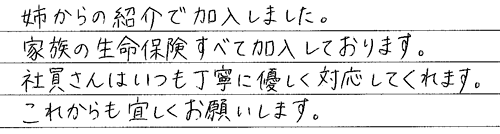 姉からの紹介で加入しました。
家族の生命保険すべて加入しております。
社員さんはいつも丁寧に優しく対応してくれます。
これからも宜しくお願いします。